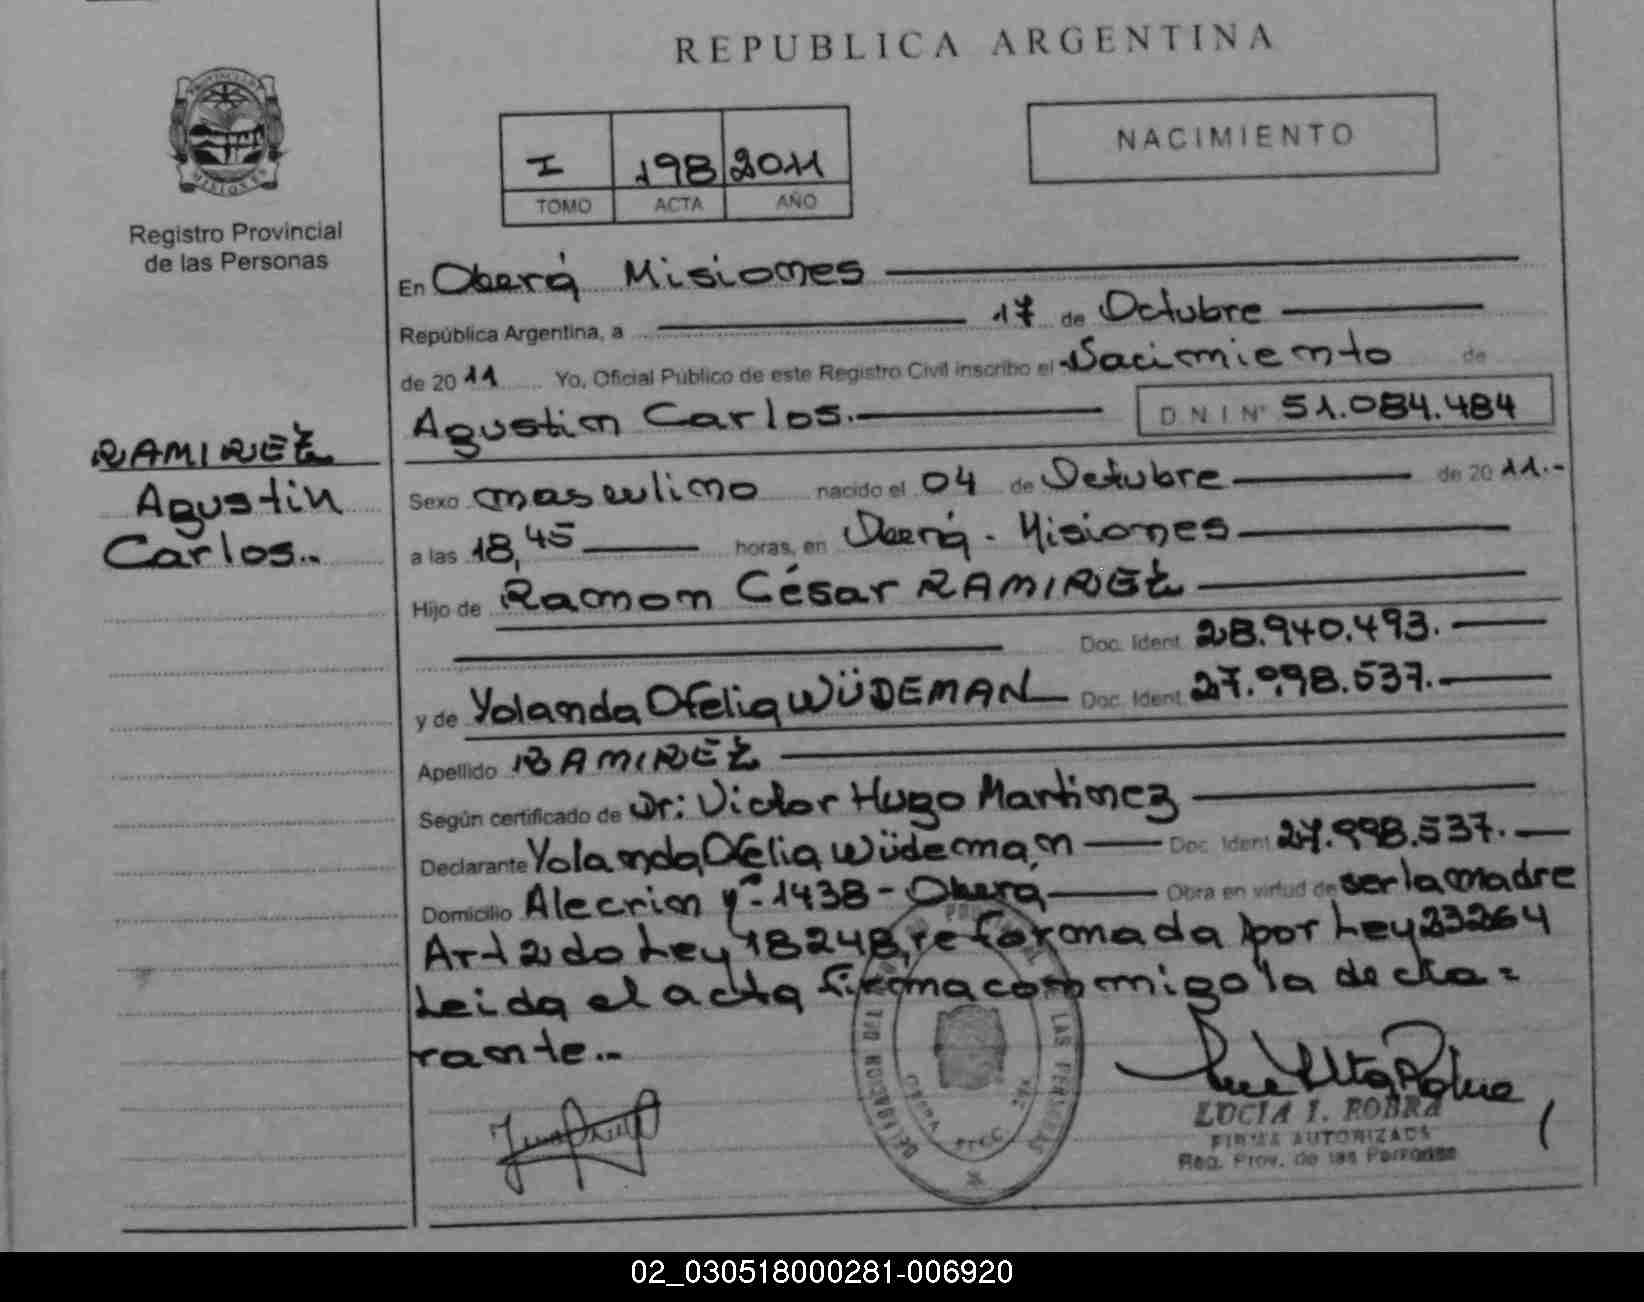 REPUBLICA ARGENTINA
PROVINCIA DE
MISIONES
Registro Provincial
de las Personas
I 198 2011
TOMO ACTA AÑO
NACIMIENTO
En Oberá Misiones
República Argentina, a 17 de Octubre
de 2011 Yo, Oficial Público de este Registro Civil inscribo el Nacimiento de
Agustin Carlos.
D N I Nº 51.084.484
RAMIREZ
Agustin
Carlos..
Sexo masculino nacido el 04 de Octubre de 2011.-
a las 18,45 horas, en Oberá - Misiones
Hijo de Ramon César RAMIREZ
Doc. Ident. 28.940.493.
y de Yolanda Ofelia WÜDEMAN Doc. Ident. 27.998.537.
Apellido RAMIREZ
Según certificado de Dr: Victor Hugo Martinez
Declarante Yolanda Ofelia Wüdeman Doc. Ident 27.998.537.
Domicilio Alecrin 1438 - Oberá Obra en virtud de ser la madre
Art 2do Ley 18248, reformada por Ley 23264
Leida el acta firma conmigo la decla=
rante..
LAS PERSONAS
LUCIA I. ROBRA
FIRMA AUTORIZADA
Reg. Prov. de las Personas
02_030518000281-006920